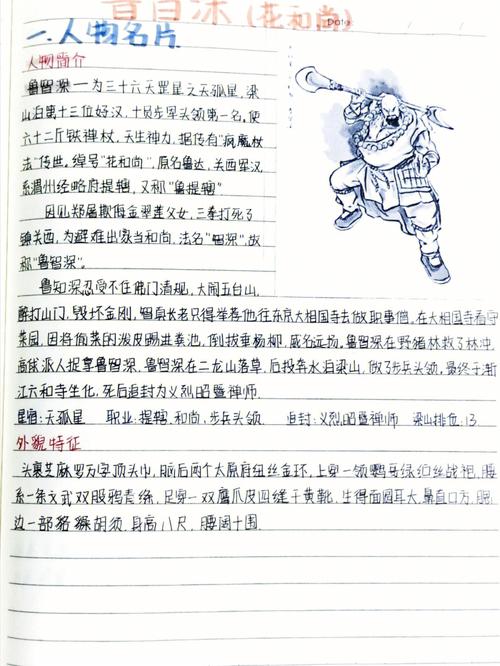 鲁智深(花和尚)
Date
一.人物名片
人物简介
鲁智深一为三十六天罡星之天孤星,梁
山泊第十三位好汉,十员步军头领第一名,使
六十二斤铁禅杖,天生神力,据传有"疯魔杖
法"传世,绰号"花和尚",原名鲁达,关西军汉,
系渭州经略府提辖,又称"鲁提辖"
因见郑屠欺侮金翠莲父女,三拳打死了
镇关西,为避难出家当和尚,法名"智深",故
称"鲁智深"
鲁智深忍受不住佛门清规,大闹五台山,
醉打山门,毁坏金刚,智真长老只得举荐他往东京大相国寺去做职事僧。在大相国寺看守
菜园,因将偷菜的泼皮踢进粪池,倒拔垂杨柳,威名远扬,鲁智深在野猪林救了林冲,
高俅派人捉拿鲁智深,鲁智深在二龙山落草,后投奔水泊梁山,做了步兵头领,最终于浙
江六和寺坐化,死后追封为义烈昭暨禅师.
星宿:天孤星 职业:提辖,和尚,步兵头领. 追封:义烈昭暨禅师 梁山排位:13.
外貌特征
头裹芝麻罗万字顶头巾,脑后两个太原府纽丝金环,上穿一领鹦哥绿纻丝战袍,腰
系一条文武双股鸦青绦,足穿一双鹰爪皮四缝干黄靴,生得面圆耳大,鼻直口方,腮
边一部貉𧳅胡须,身高八尺,腰阔十围.